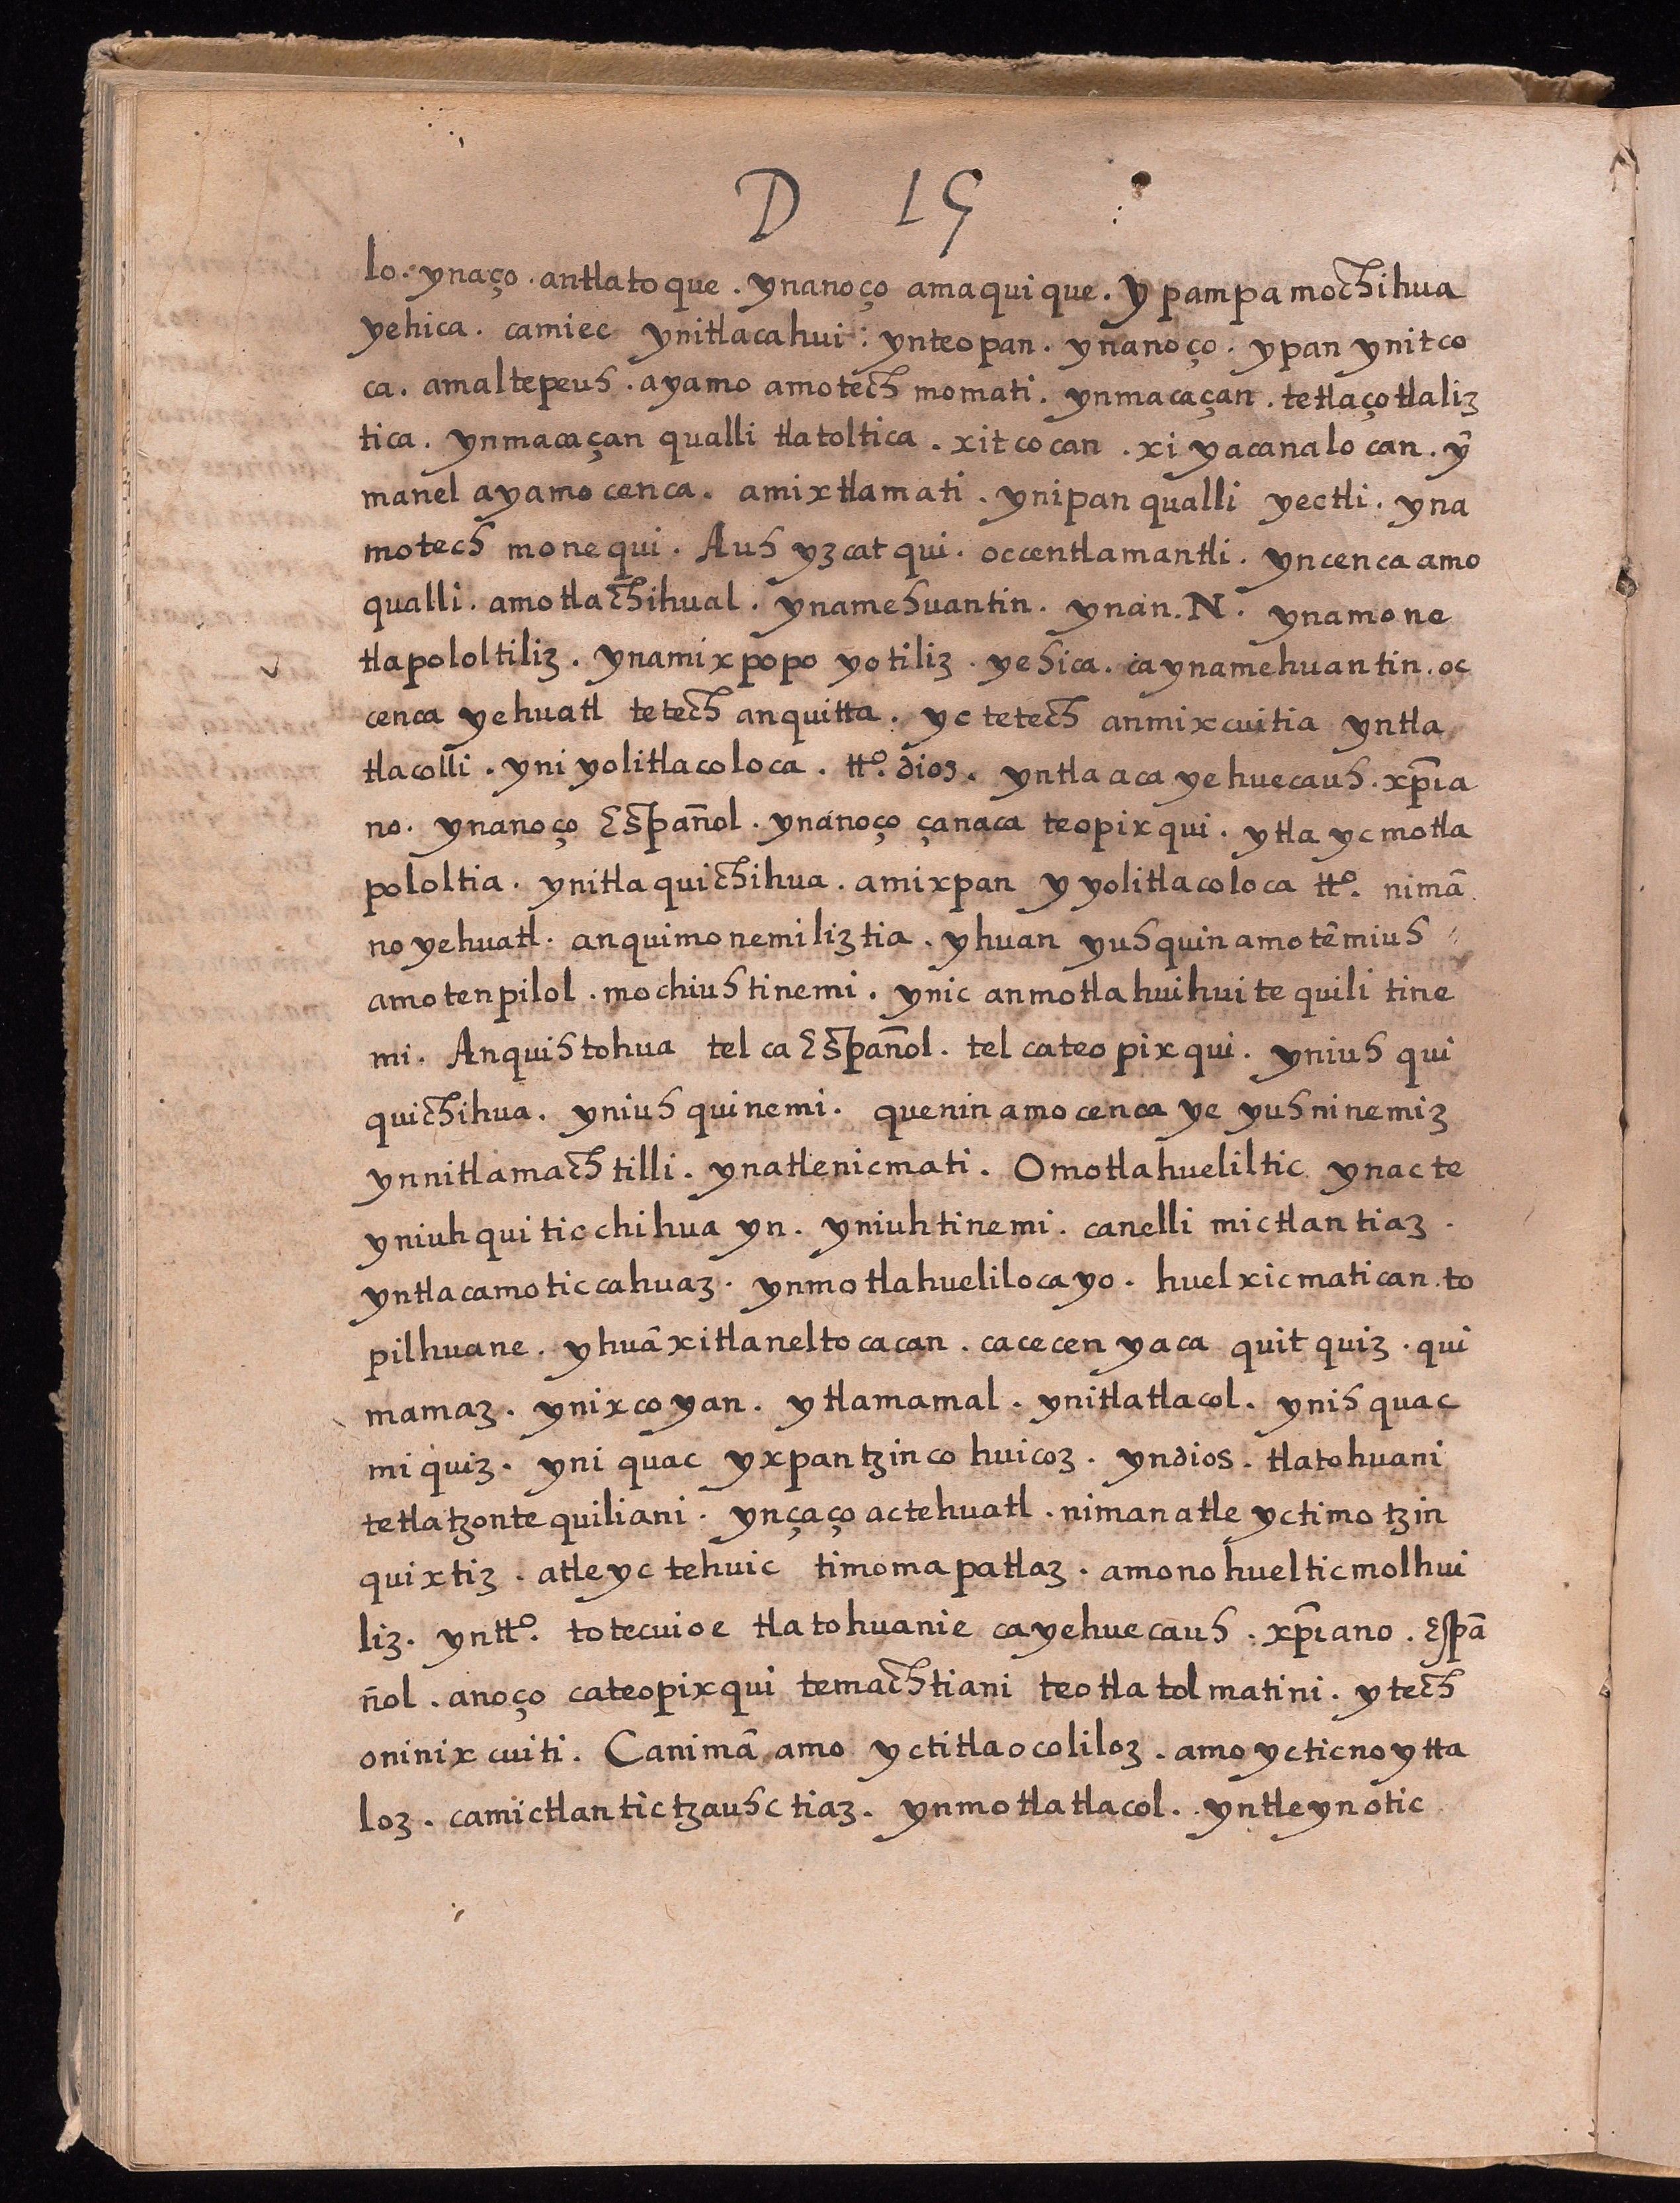 D 15
lo. ynaço. antlatoque. ynanoço amaquique. ypampa mochihua
yehica. camiec ynitlacahui: ynteopan. ynanoço. ypan ynitco
ca. amaltepeuh. ayamo amotech momati. ynmacaçan. tetlaçotlaliz
tica. ynmacaçan qualli tlatoltica. xitcocan. xiyacanalocan. ỹ
manel ayamo cenca. amixtlamati. ynipan qualli yectli. yna
motech monequi. Auh yzcatqui. occentlamantli. yncenca amo
qualli. amotlachihual. ynamehuantin. ynan. N. ynamone
tlapololtiliz. ynamixpopoyotiliz. yehica. ca ynamehuantin. oc
cenca yehuatl tetech anquitta. yc tetech anmixcuitia yntla
tlacolli. yniyolitlacoloca. tt.º dios. yntla aca yehuecauh. xp̄ia
no. ynanoço Español. ynanoço çanaca teopixqui. ytla yc motla
pololtia. ynitla quichihua. amixpan yyolitlacoloca tt.º nimã
no yehuatl. anquimonemiliztia. yhuan yuhquin amotẽmiuh
amotenpilol. mochiuhtinemi. ynic anmotlahuihuitequilitine
mi. Anquihtohua tel ca Español. tel ca teopixqui. yniuh qui
quichihua. yniuh quinemi. quenin amo cenca ye yuh ninemiz
ynnitlamachtilli. ynatlenicmati. Omotlahueliltic ynac te
yniuhqui ticchihua yn. yniuh tinemi. canelli mictlan tiaz.
yntlacamo ticcahuaz. ynmotlahuelilocayo. huel xicmatican. to
pilhuane. yhuã xitlaneltocacan. ca cecenyaca quitquiz. qui
mamaz. ynixcoyan. ytlamamal. ynitlatlacol. ynihquac
miquiz. yniquac yxpantzinco huicoz. yndios. tlatohuani
tetlatzontequiliani. ynçaço actehuatl. niman atle yc timotzin
quixtiz. atle yc tehuic timomapatlaz. amono huel ticmolhui
liz. yntt.º totecuioe tlatohuanie ca yehuecauh. xp̄iano. Espã
ñol. anoço ca teopixqui temachtiani teotlatolmatini. ytech
oninixcuiti. Ca nimã amo yc titlaocoliloz. amo yc ticnoytta
loz. ca mictlan tictzauhctiaz. ynmotlatlacol. yntleyn otic